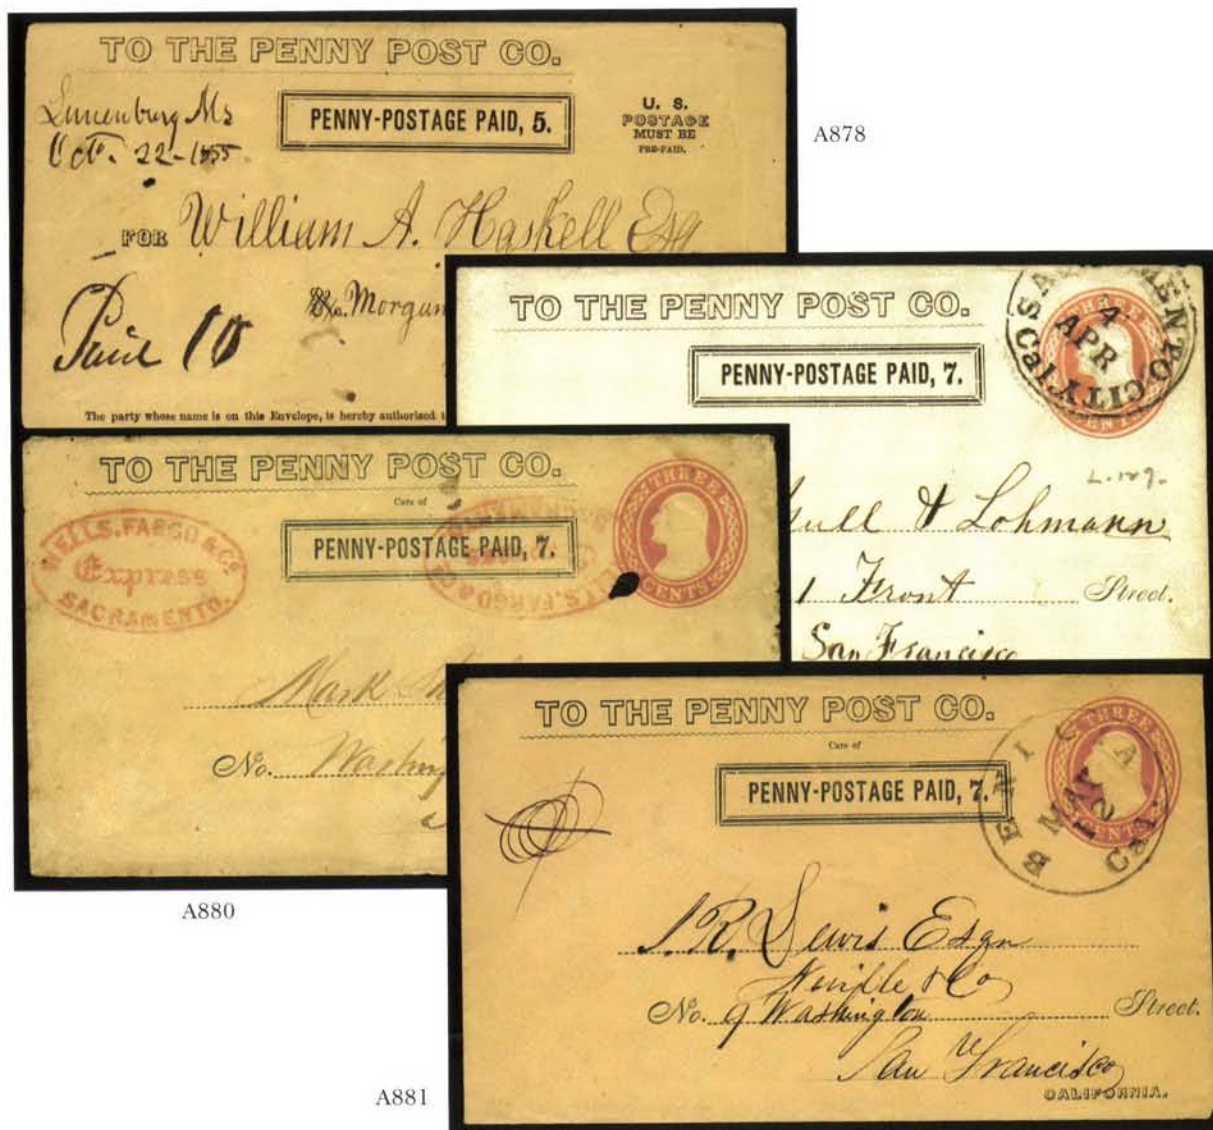 TO THE PENNY POST CO.
Lunenburg Ms
Oct. 22-1855
PENNY-POSTAGE PAID, 5.
U. S.
POSTAGE
MUST BE
PRE-PAID.
A878
FOR William A. Haskell Esq
Morgan
Paid 10
The party whose name is on this Envelope, is hereby authorised
TO THE PENNY POST CO.
SACRAMENTO CITY Cal.
4
APR
THREE
CENTS
PENNY-POSTAGE PAID, 7.
& Lohmann
1 Front Street.
San Francisco
TO THE PENNY POST CO.
Care of
THREE
CENTS
WELLS, FARGO & Co.
Express
SACRAMENTO.
PENNY-POSTAGE PAID, 7.
Mark
No. Washing
A880
TO THE PENNY POST CO.
Care of
PENNY-POSTAGE PAID, 7.
THREE
CENTS
BENICIA Cal.
MAY
12
J. R. Lewis Esqr
Neville & Co
No. 9 Washington Street.
San Francisco
CALIFORNIA.
A881